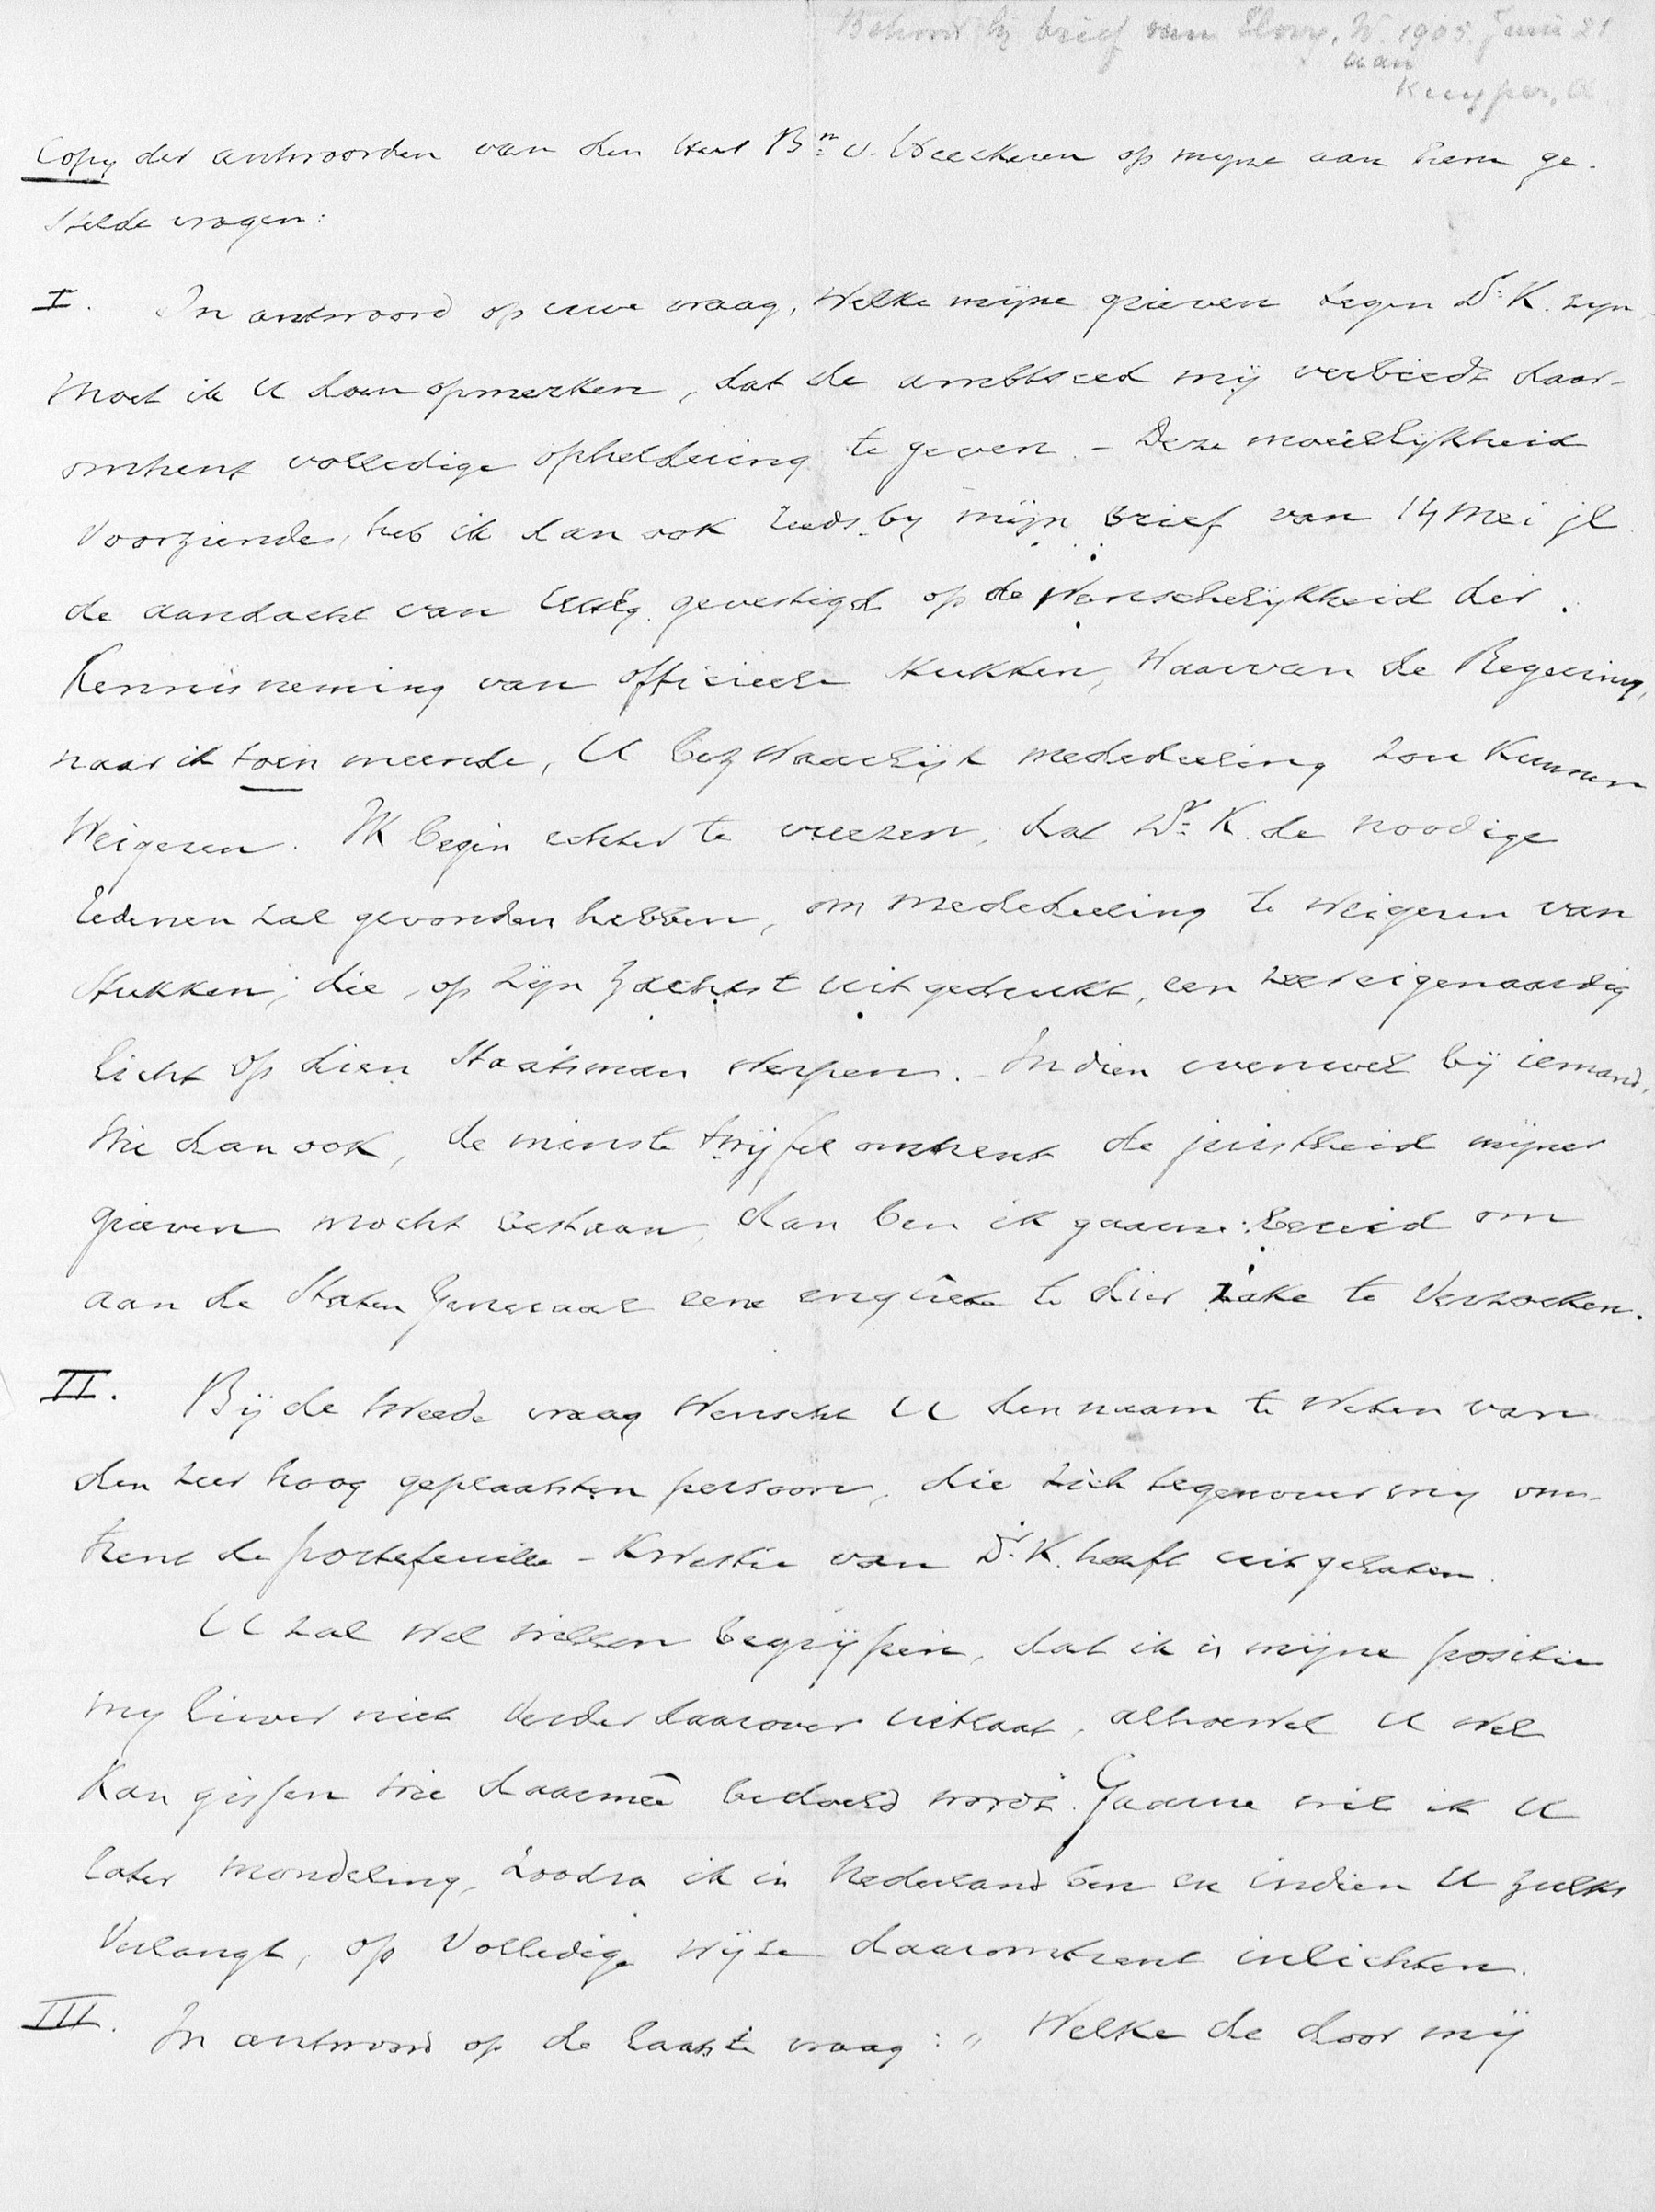 Behoort bij brief van Hovy, W. 1905 Juni 21
aan
Kuyper, A
Copy der antwoorden van den Heer Bn v. Heeckeren op mijne aan hem ge-
stelde vragen:
I. In antwoord op uwe vraag, welke mijne grieven tegen Dr. K. zijn
moet ik U doen opmerken, dat de ambtseed mij verbiedt daar-
omtrent volledige opheldering te geven. - Deze moeielijkheid
voorziende, heb ik dan ook reeds by mijn brief van 14 Mei jl.
de aandacht van UEdg. gevestigd op de wenschelijkheid der
kennisneming van officieele stukken, waarvan de Regeering,
naar ik toen meende, U bezwaarlijk mededeeling zou kunnen
weigeren. Ik begin echter te vreezen, dat Dr. K. de noodige
redenen zal gevonden hebben, om mededeeling te weigeren van
stukken, die, op zijn zachtst uitgedrukt, een zeer eigenaardig
licht op dien Staatsman werpen. - Indien evenwel bij iemand,
wie dan ook, de minste twijfel omtrent de juistheid mijner
grieven mocht bestaan, dan ben ik gaarne bereid om
aan de Staten Generaal eene enquête te dier zake te verzoeken.
II. Bij de tweede vraag wenscht U den naam te weten van
den zeer hoog geplaatsten persoon, die zich tegenover mij om-
trent de portefeuille - kwestie van Dr. K. heeft uitgelaten.
U zal wel willen begrijpen, dat ik in mijne positie
my liever niet verder daarover uitlaat, alhoewel U wel
kan gissen wie daarmeê bedoeld wordt. Gaarne wil ik U
later mondeling, zoodra ik in Nederland ben en indien U zulks
verlangt, op volledige wijze daaromtrent inlichten.
III. In antwoord op de laatste vraag: „ Welke de door mij